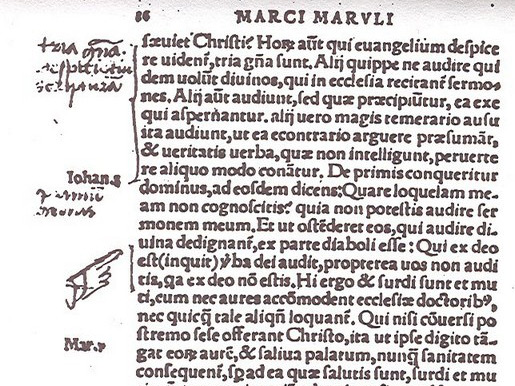 86 MARCI MARVLI
sæuiet Christi? Horꝝ aũt qui euangelium despice
re uident̃, tria gña sunt. Alij quippe ne audire qui
dem uolũt diuinos, qui in ecclesia recitant̃ sermo-
nes. Alij aũt audiunt, sed quæ præcipiũtur, ea exe
qui aspernantur. alij uero magis temerario ausu
ita audiunt, ut ea econtrario arguere præsumãt,
& ueritatis uerba, quæ non intelligunt, peruerte
re aliquo modo conãtur. De primis conqueritur
Iohan.8
dominus, ad eosdem dicens: Quare loquelam me-
am non cognoscitis? quia non potestis audire ser
monem meum. Et ut ostẽderet eos, qui audire di-
uina dedignant̃, ex parte diaboli esse: Qui ex deo
est (inquit) ꝟba dei audit, propterea uos non audi
tis, qa ex deo nõ estis. Hi ergo & surdi sunt et mu
ti, cum nec aures accõmodent ecclesiæ doctoribꝰ,
nec quicꝗ̃ tale aliqñ loquant̃. Qui nisi cõuersi po
Mar.7
stremo sese offerant Christo, ita ut ipse digito tã-
gat eorꝝ aurẽ, & saliua palatum, nunꝗ̃ sanitatem
consequent̃, sꝫ ad ea quæ salutis sunt, surdi et mu